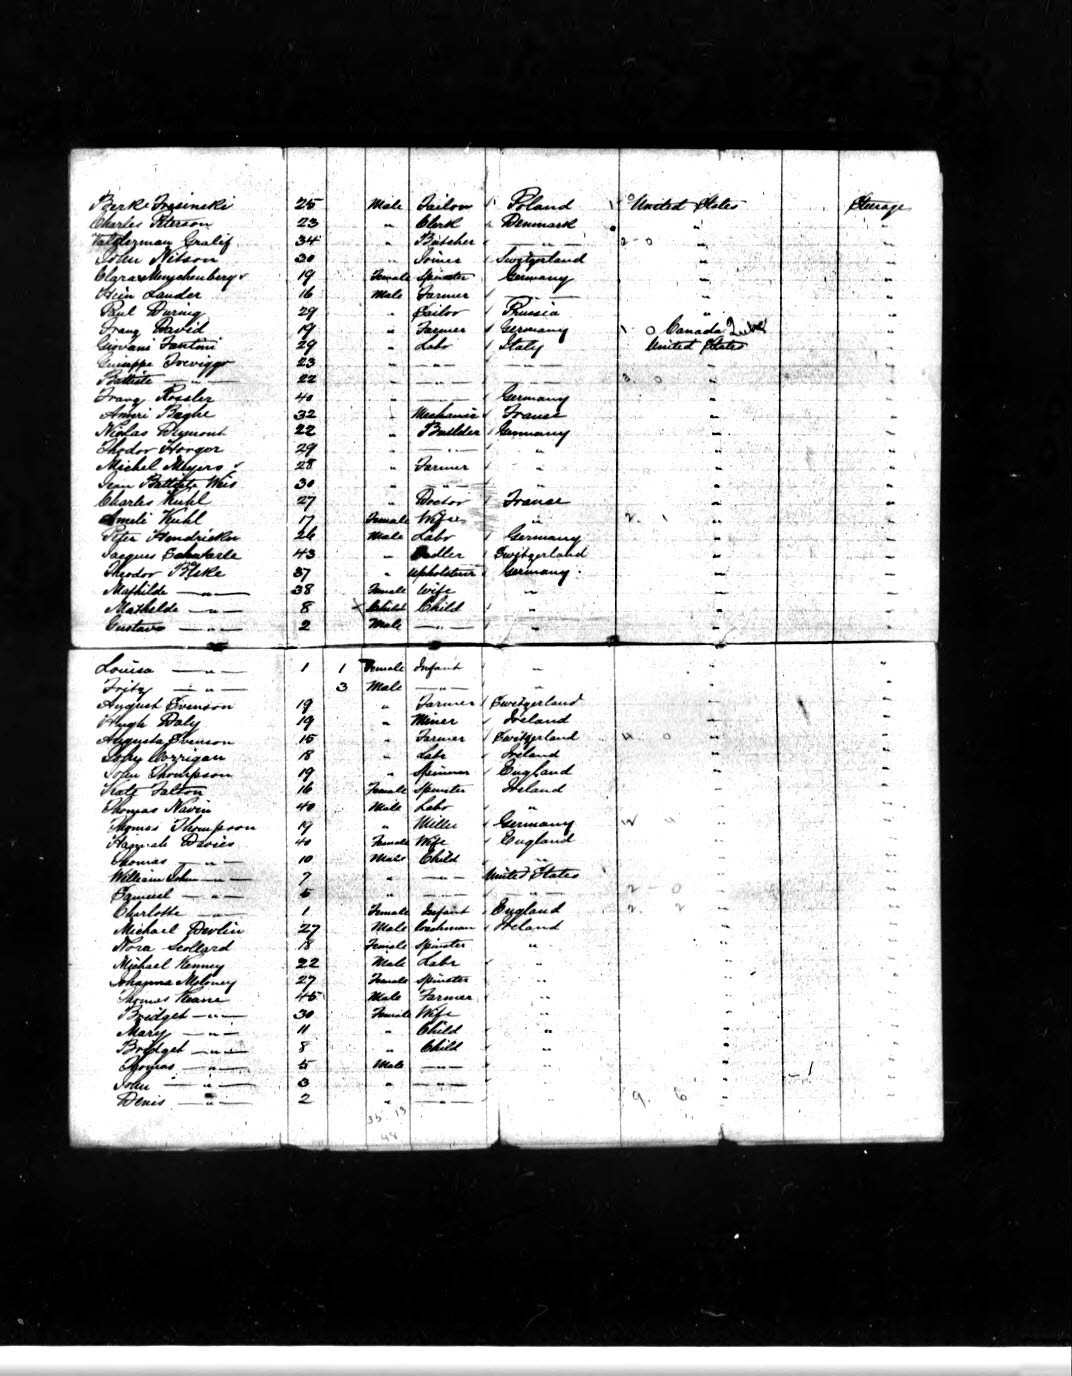 Berke 25 Male Tailor Poland United States Steerage
Charles Peterson 23 " Clerk Denmark " "
34 " Butcher — " — " "
John Nilson 30 " Joiner Switzerland " "
Clara 19 Female Spinster Germany " "
Hein Lander 16 Male Farmer — " "
Paul 29 " Sailor Prussia " "
Franz David 19 " Farmer Germany Canada "
Giovani Fantoni 29 " Labr Italy United States "
Guiseppe 23 " — " — — " — " "
Battiste — " — 22 " — " — — " — " "
Franz Rossler 40 " — " — Germany " "
32 " Mechanic France " "
Nicolas 22 " Builder Germany " "
Thodor 29 " — " — " " "
Michel Meyers 28 " Farmer " " "
Jean Battiste Weis 30 " — " — " " "
Charles Kuhl 27 " Doctor France " "
Ameli Kuhl 17 Female Wife " " "
Peter 26 Male Labr Germany " "
Jacques 43 " Switzerland " "
Theodor 37 " Upholsterer Germany " "
Mathilde — " — 38 Female Wife " " "
Mathelde — " — 8 Child Child " " "
Gustave — " — 2 Male — " — " " "
Louisa — " — 1 1 Female Infant " " "
Fritz — " — 3 Male — " — " " "
August Svenson 19 " Farmer Switzerland " "
Hugh Daly 19 " Miner Ireland " "
Augusta Svenson 15 " Farmer Switzerland " "
Corrigan 18 " Labr Ireland " "
John Thompson 19 " Spinner England " "
Kate 16 Female Spinster Ireland " "
Thomas Navin 40 Male Labr " " "
Thomas Thompson 19 " Miller Germany " "
Hannah Davies 40 Female Wife England " "
Thomas — " — 10 Male Child " " "
William John — " — 7 " — " — United States " "
Samuel — " — 5 " — " — — " — " "
Charlotte — " — 1 Female Infant England " "
Michael Devlin 27 Male Coachman Ireland " "
Nora Scollard 18 Female Spinster " " "
Michael Kenney 22 Male Labr " " "
Johanna Moloney 27 Female Spinster " " "
Thomas Keane 45 Male Farmer " " "
Bridget — " — 30 Female Wife " " "
Mary — " — 11 " Child " " "
Bridget — " — 8 " Child " " "
Thomas — " — 5 Male — " — " " "
John — " — 3 " — " — " " "
Denis — " — 2 " — " — " 9. 6 " "
35 13
48